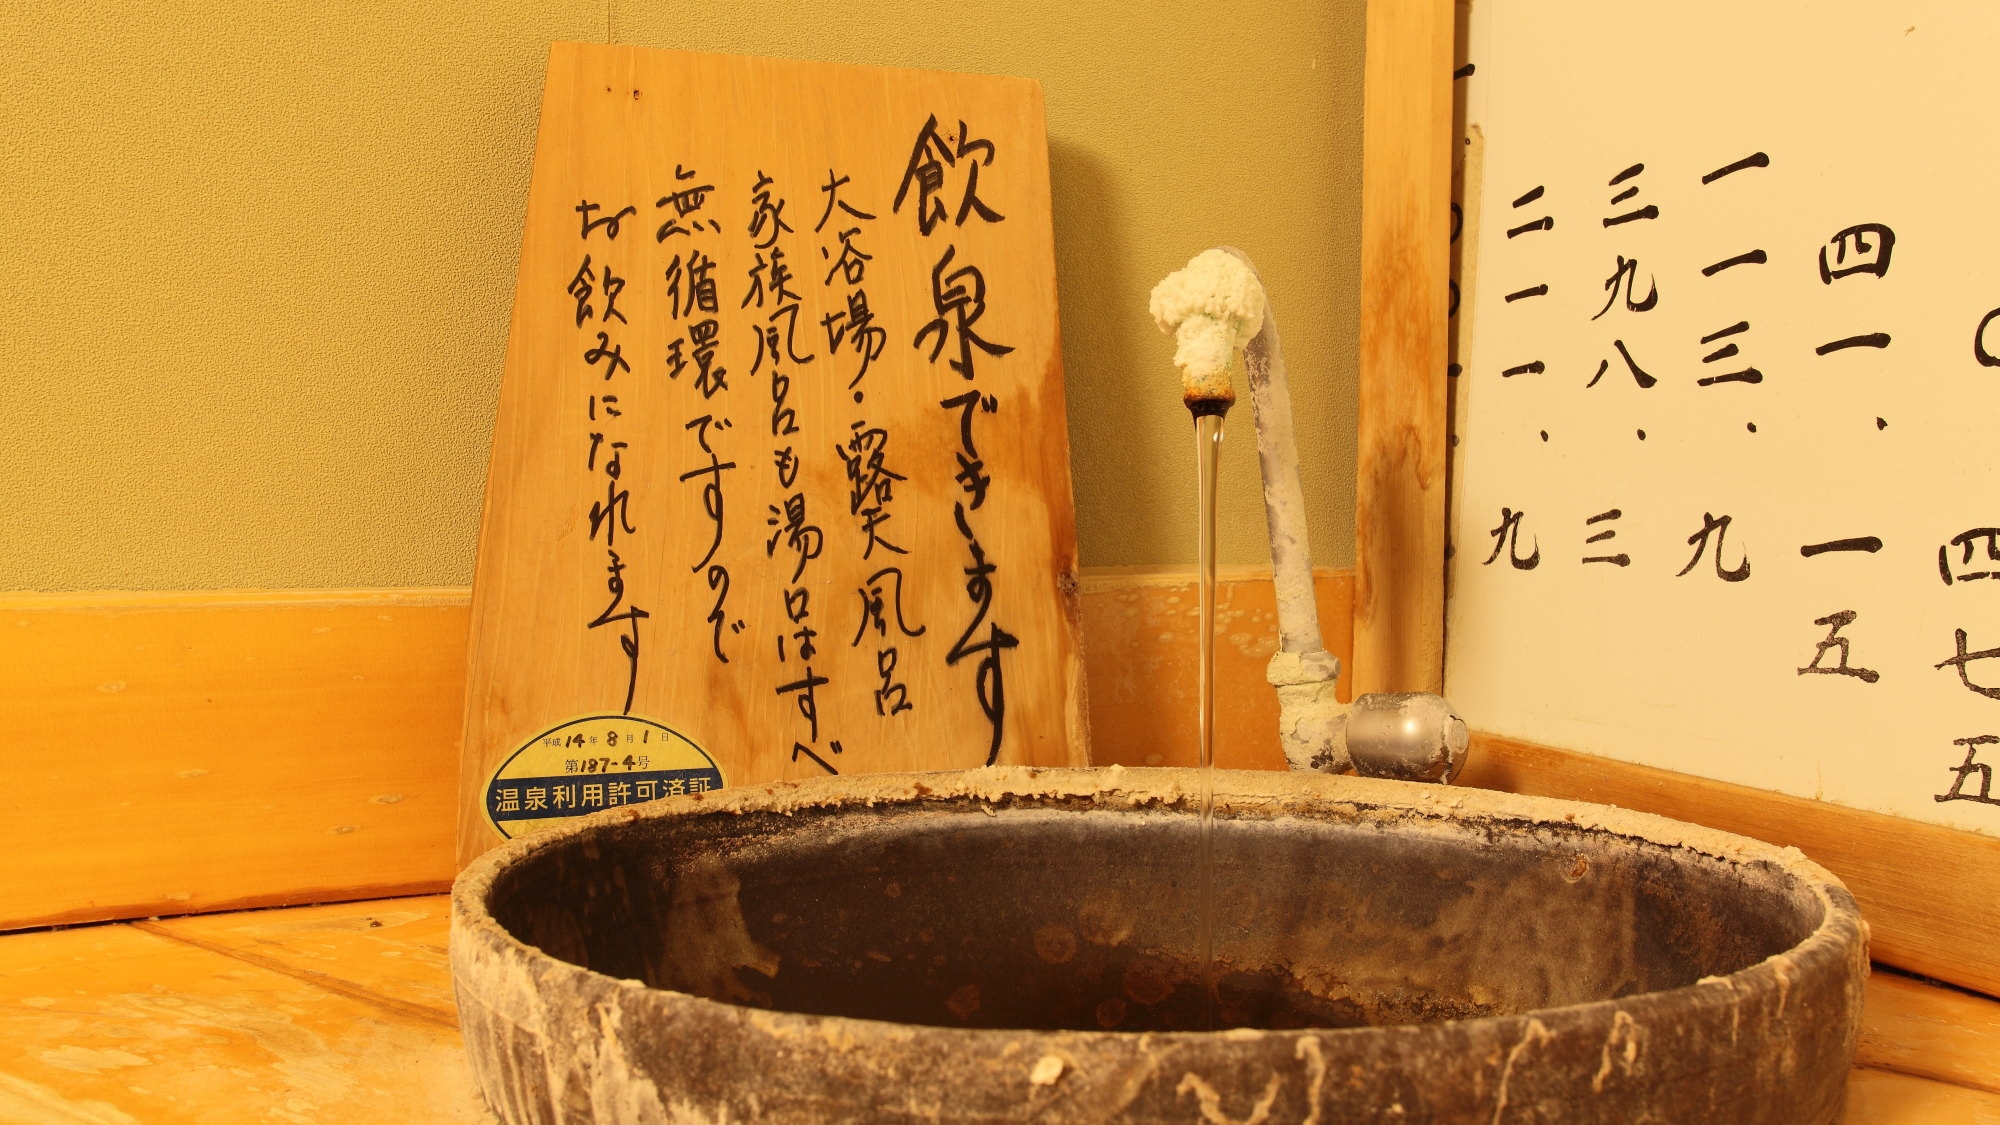 飲泉できます
大浴場・露天風呂
家族風呂も湯口はすべ
無循環ですので
お飲みになれます
平成14年8月1日
第187-4号
温泉利用許可済証
四七五
四一.一五
一一三.九
三九八.三
二一一.九